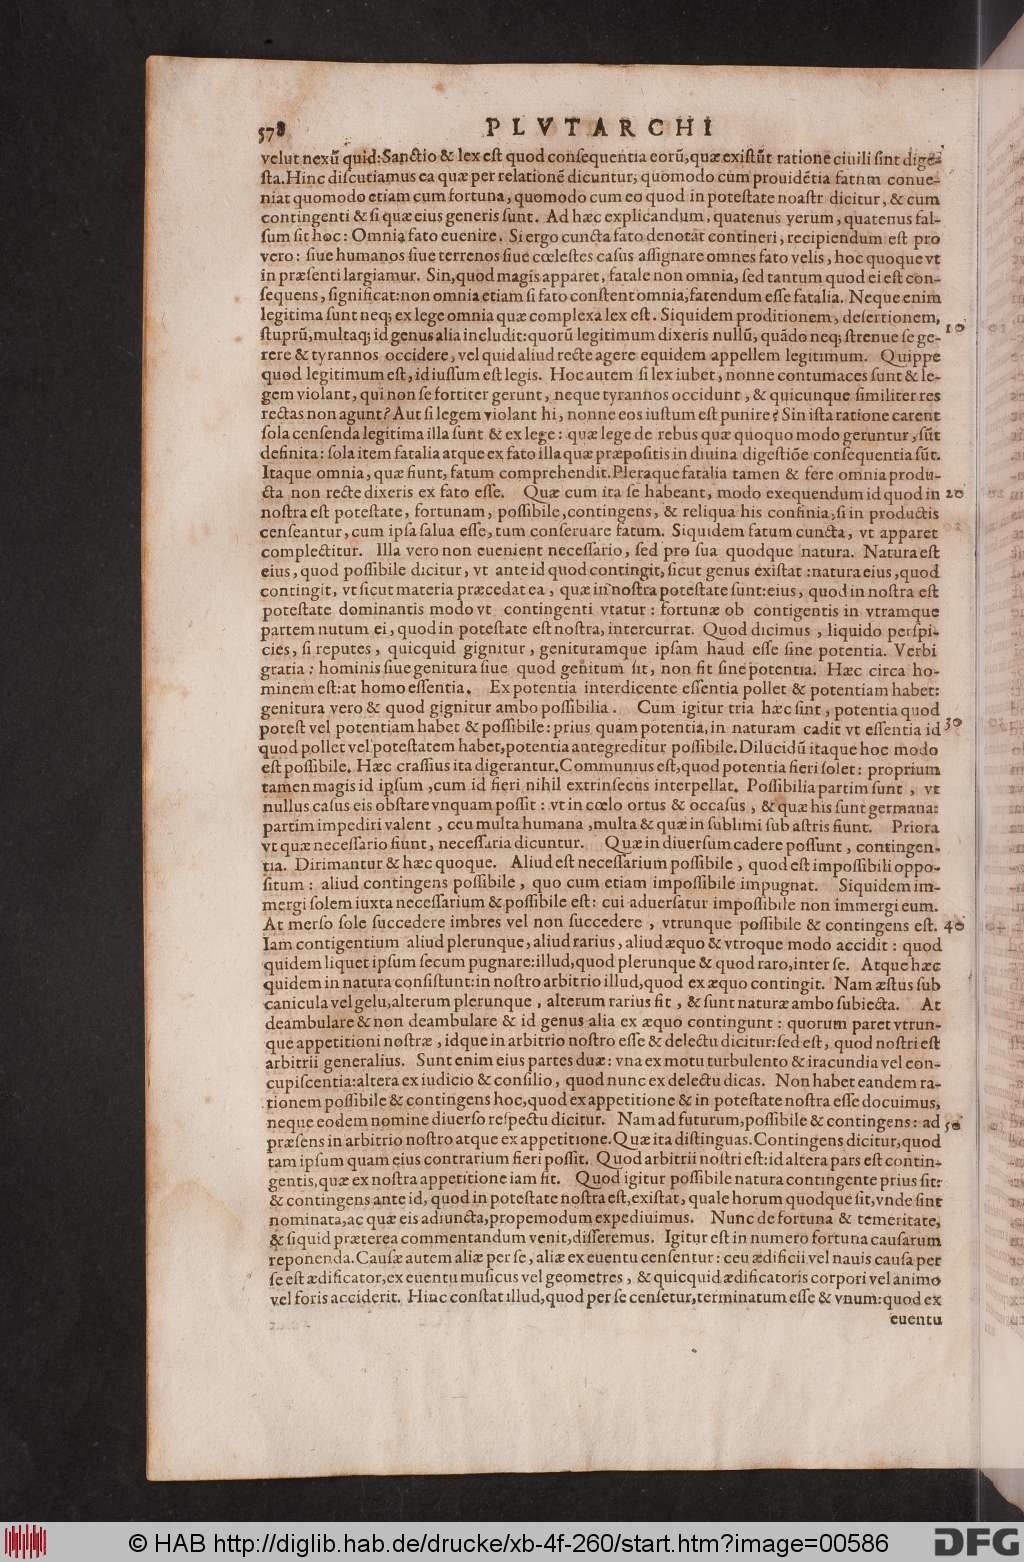 578
PLVTARCHI
velut nexū quid: Sanctio & lex est quod consequentia eorū, quæ existūt ratione ciuili sint dige-
sta. Hinc discutiamus ea quæ per relationē dicuntur; quomodo cùm prouidētia fatum conue-
niat quomodo etiam cum fortuna, quomodo cum eo quod in potestate noastr dicitur, & cum
contingenti & si quæ eius generis sunt. Ad hæc explicandum, quatenus verum, quatenus fal-
sum sit hoc: Omnia fato euenire. Si ergo cuncta fato denotat contineri, recipiendum est pro
vero: siue humanos siue terrenos siue cœlestes casus assignare omnes fato velis, hoc quoque vt
in præsenti largiamur. Sin, quod magis apparet, fatale non omnia, sed tantum quod ei est con-
sequens, significat: non omnia etiam si fato constent omnia, fatendum esse fatalia. Neque enim
legitima sunt neq; ex lege omnia quæ complexa lex est. Siquidem proditionem, desertionem,
stuprū, multaq; id genus alia includit: quorū legitimum dixeris nullū, quādo neq; strenue se ge- 10
rere & tyrannos occidere, vel quid aliud recte agere equidem appellem legitimum. Quippe
quod legitimum est, id iussum est legis. Hoc autem si lex iubet, nonne contumaces sunt & le-
gem violant, qui non se fortiter gerunt, neque tyrannos occidunt, & quicunque similiter res
rectas non agunt? Aut si legem violant hi, nonne eos iustum est punire? Sin ista ratione carent
sola censenda legitima illa sunt & ex lege: quæ lege de rebus quæ quoquo modo geruntur, sūt
definita: sola item fatalia atque ex fato illa quæ præpositis in diuina digestiōe consequentia sūt.
Itaque omnia, quæ fiunt, fatum comprehendit. Pleraque fatalia tamen & fere omnia produ-
cta non recte dixeris ex fato esse. Quæ cum ita se habeant, modo exequendum id quod in 20
nostra est potestate, fortunam, possibile, contingens, & reliqua his confinia, si in productis
censeantur, cum ipsa salua esse, tum conseruare fatum. Siquidem fatum cuncta, vt apparet
complectitur. Illa vero non euenient necessario, sed pro sua quodque natura. Natura est
eius, quod possibile dicitur, vt ante id quod contingit, sicut genus existat: natura eius, quod
contingit, vt sicut materia præcedat ea, quæ in nostra potestate sunt: eius, quod in nostra est
potestate dominantis modo vt contingenti vtatur: fortunæ ob contigentis in vtramque
partem nutum ei, quod in potestate est nostra, intercurrat. Quod dicimus, liquido perspi-
cies, si reputes, quicquid gignitur, genituramque ipsam haud esse sine potentia. Verbi
gratia: hominis siue genitura siue quod genitum sit, non fit sine potentia. Hæc circa ho-
minem est: at homo essentia. Ex potentia interdicente essentia pollet & potentiam habet:
genitura vero & quod gignitur ambo possibilia. Cum igitur tria hæc sint, potentia quod
potest vel potentiam habet & possibile: prius quam potentia, in naturam cadit vt essentia id 30
quod pollet vel potestatem habet, potentia antegreditur possibile. Dilucidū itaque hoc modo
est possibile. Hæc crassius ita digerantur. Communius est, quod potentia fieri solet: proprium
tamen magis id ipsum, cum id fieri nihil extrinsecus interpellat. Possibilia partim sunt, vt
nullus casus eis obstare vnquam possit: vt in cœlo ortus & occasus, & quæ his sunt germana:
partim impediri valent, ceu multa humana, multa & quæ in sublimi sub astris fiunt. Priora
vt quæ necessario fiunt, necessaria dicuntur. Quæ in diuersum cadere possunt, contingen-
tia. Dirimantur & hæc quoque. Aliud est necessarium possibile, quod est impossibili oppo-
situm: aliud contingens possibile, quo cum etiam impossibile impugnat. Siquidem im-
mergi solem iuxta necessarium & possibile est: cui aduersatur impossibile non immergi eum.
At merso sole succedere imbres vel non succedere, vtrunque possibile & contingens est. 40
Iam contigentium aliud plerunque, aliud rarius, aliud æquo & vtroque modo accidit: quod
quidem liquet ipsum secum pugnare: illud, quod plerunque & quod raro, inter se. Atque hæc
quidem in natura consistunt: in nostro arbitrio illud, quod ex æquo contingit. Nam æstus sub
canicula vel gelu, alterum plerunque, alterum rarius fit, & sunt naturæ ambo subiecta. At
deambulare & non deambulare & id genus alia ex æquo contingunt: quorum paret vtrun-
que appetitioni nostræ, idque in arbitrio nostro esse & delectu dicitur: sed est, quod nostri est
arbitrii generalius. Sunt enim eius partes duæ: vna ex motu turbulento & iracundia vel con-
cupiscentia: altera ex iudicio & consilio, quod nunc ex delectu dicas. Non habet eandem ra-
tionem possibile & contingens hoc, quod ex appetitione & in potestate nostra esse docuimus,
neque eodem nomine diuerso respectu dicitur. Nam ad futurum, possibile & contingens: ad 50
præsens in arbitrio nostro atque ex appetitione. Quæ ita distinguas. Contingens dicitur, quod
tam ipsum quam eius contrarium fieri possit. Quod arbitrii nostri est: id altera pars est contin-
gentis, quæ ex nostra appetitione iam fit. Quod igitur possibile natura contingente prius sit:
& contingens ante id, quod in potestate nostra est, existat, quale horum quodque sit, vnde sint
nominata, ac quæ eis adiuncta, propemodum expediuimus. Nunc de fortuna & temeritate,
& siquid præterea commentandum venit, disseremus. Igitur est in numero fortuna causarum
reponenda. Causæ autem aliæ per se, aliæ ex euentu censentur: ceu ædificii vel nauis causa per
se est ædificator, ex euentu musicus vel geometres, & quicquid ædificatoris corpori vel animo
vel foris acciderit. Hinc constat illud, quod per se censetur, terminatum esse & vnum: quod ex
euentu
© HAB http://diglib.hab.de/drucke/xb-4f-260/start.htm?image=00586
DFG